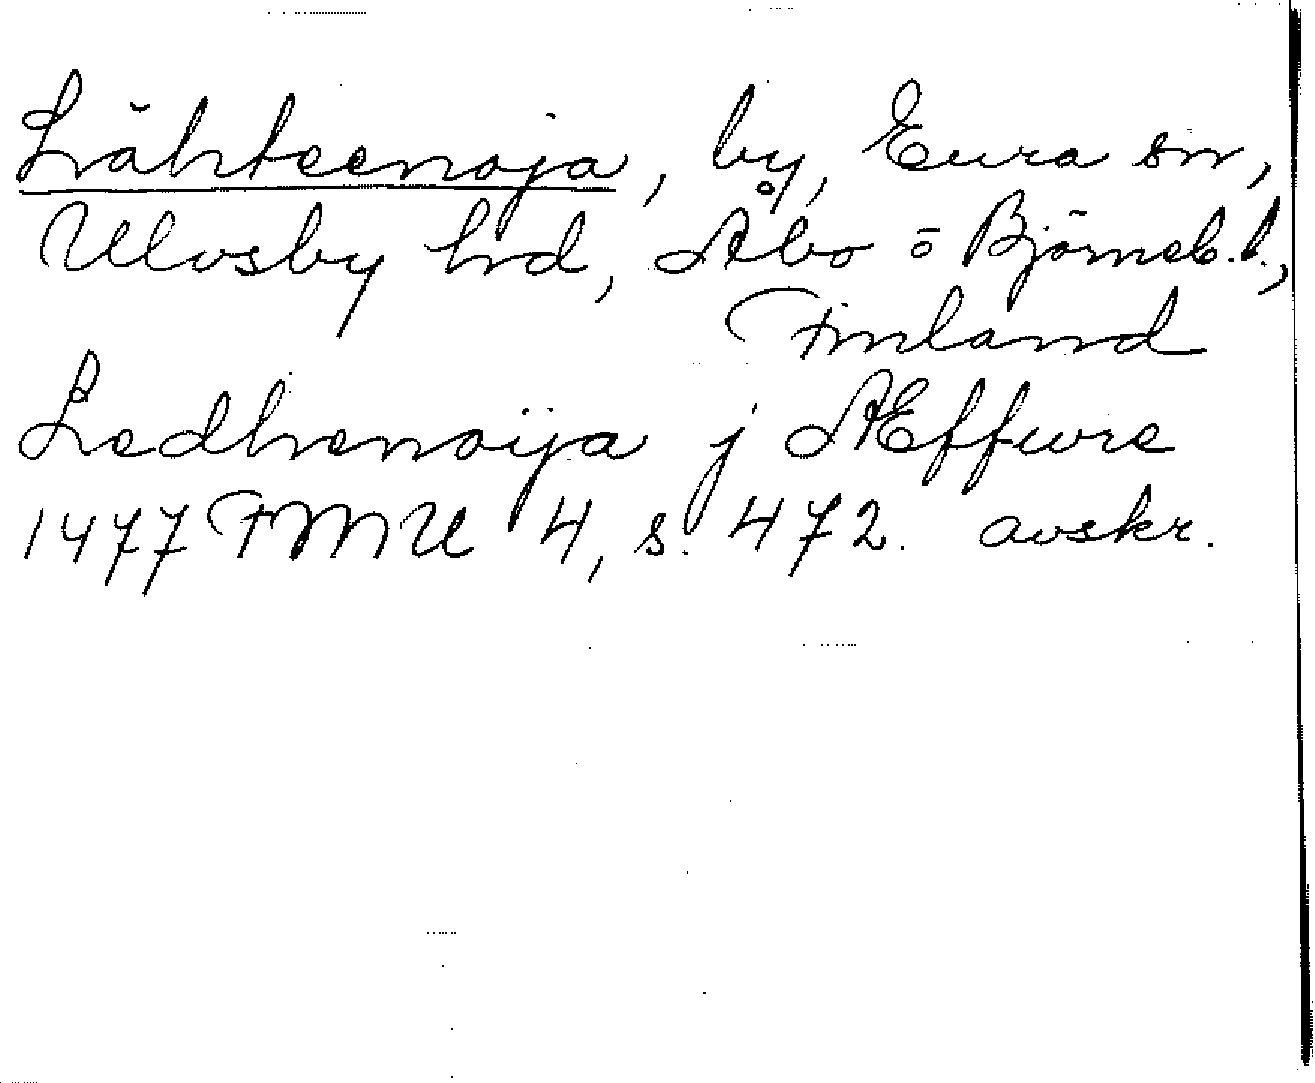 Lähteenoja, by, Eura sn,
Ulvsby hrd, Åbo o Björneb. l.,
Finland
Ledhenoija j Æffwre
1477 FMU 4, s. 472. avskr.